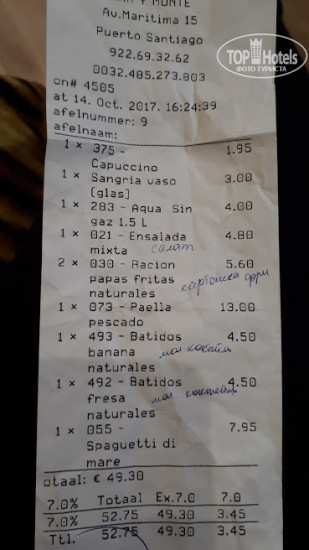 Y MONTE
Av.Maritima 15
Puerto Santiago
TOP Hotels
ФОТО ТУРИСТА
922.69.32.62
0032.485.273.803
on# 4505
at 14. Oct. 2017. 16:24:39
afelnummer: 9
afelnaam:
1 x 375 - 1.95
Capuccino
1 x Sangria vaso 3.00
(glas)
1 x 283 - Aqua Sin 4.00
gaz 1.5 L
1 x 021 - Ensalada 4.80
mixta салат
2 x 030 - Racion 5.60
papas fritas картошка фри
naturales
1 x 073 - Paella 13.00
pescado
1 x 493 - Batidos 4.50
banana мол коктейль
naturales
1 x 492 - Batidos 4.50
fresa мол. коктейль
naturales
1 x 055 - 7.95
Spaguetti di
mare
otaal: € 49.30
7.0% Totaal Ex.7.0 7.0
7.0% 52.75 49.30 3.45
Ttl. 52.75 49.30 3.45